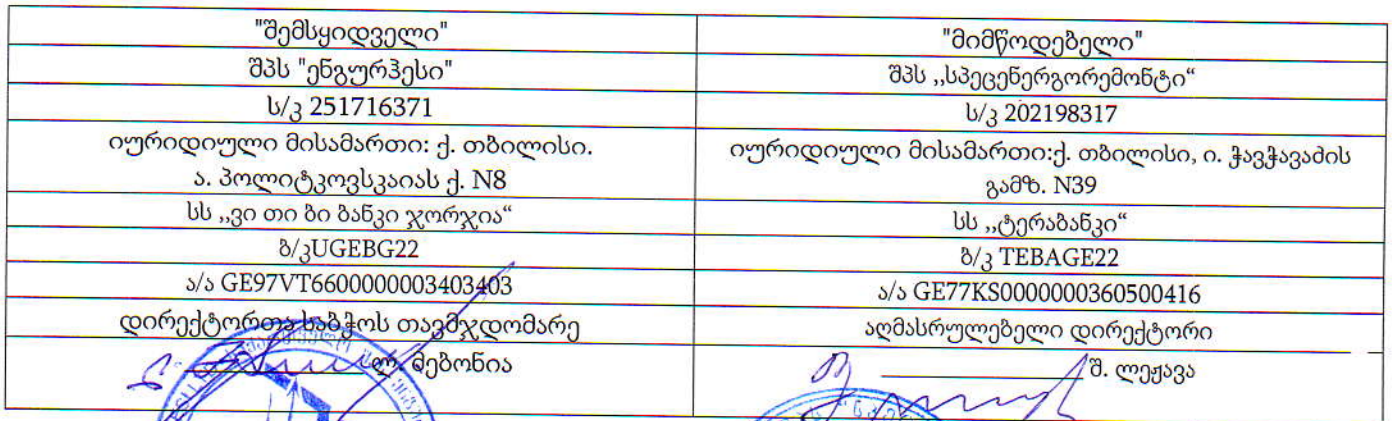 "შემსყიდველი"
"მიმწოდებელი"
შპს "ენგურჰესი"
შპს „სპეცენერგორემონტი“
ს/კ 251716371
ს/კ 202198317
იურიდიული მისამართი: ქ. თბილისი.
ა. პოლიტკოვსკაიას ქ. N8
იურიდიული მისამართი:ქ. თბილისი, ი. ჭავჭავაძის
გამზ. N39
სს „ვი თი ბი ბანკი ჯორჯია“
სს „ტერაბანკი“
ბ/კUGEBG22
ბ/კ TEBAGE22
ა/ა GE97VT6600000003403403
ა/ა GE77KS0000000360500416
დირექტორთა საბჭოს თავმჯდომარე
აღმასრულებელი დირექტორი
ლ. მებონია
შ. ლეჟავა